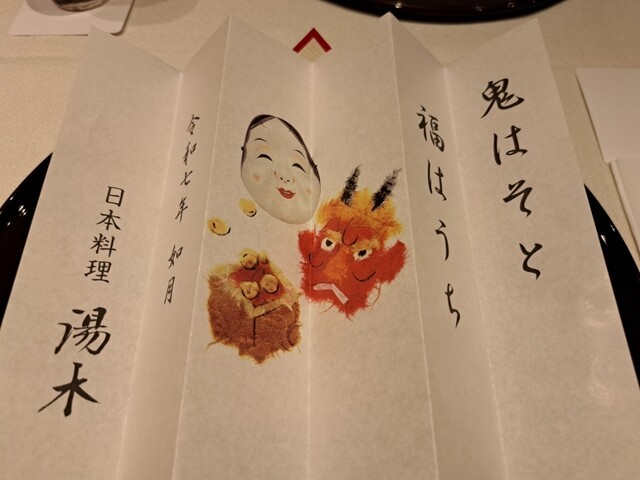 鬼はそと
福はうち
令和七年 如月
日本料理 湯木